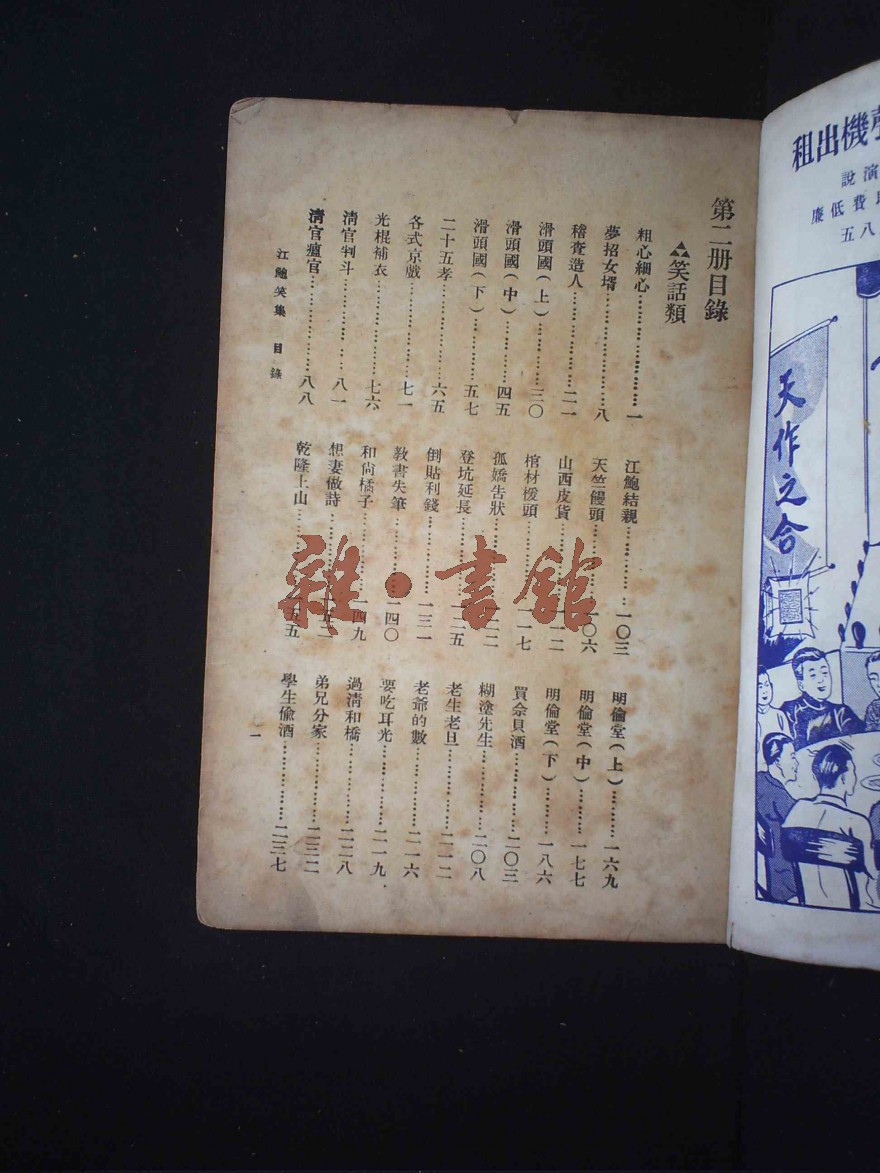 第二册目錄
笑話類
粗心細心⋯⋯一
夢招女壻⋯⋯八
稽查造人⋯⋯二一
滑頭國(上)⋯⋯三〇
滑頭國(中)⋯⋯四五
滑頭國(下)⋯⋯五七
二十五孝⋯⋯六五
各式京戲⋯⋯七一
光棍補衣⋯⋯七六
清官判斗⋯⋯八一
清官瘟官⋯⋯八八
江鮑結親⋯⋯一〇三
天竺饅頭⋯⋯一〇六
山西皮貨⋯⋯一一二
棺材 頭⋯⋯一一七
孤孀告狀⋯⋯一二二
登坑延長⋯⋯一二五
倒貼利錢⋯⋯一三一
教書失筆⋯⋯一四〇
和尙橘子⋯⋯一四九
想妻做詩⋯⋯
乾隆上山⋯⋯ 五五
明倫堂(上)⋯⋯一六九
明倫堂(中)⋯⋯一七七
明倫堂(下)⋯⋯一八六
買佘貝酒⋯⋯二〇三
糊塗先生⋯⋯二〇八
老生老旦⋯⋯二一二
老爺的數⋯⋯二一六
要吃耳光⋯⋯二一九
過清和橋⋯⋯二二八
弟兄分家⋯⋯二三二
學生偷酒⋯⋯二三七
江鮑笑集 目錄
一
雜·書館
租出機聲
說演
廉低費
五八
天作之合